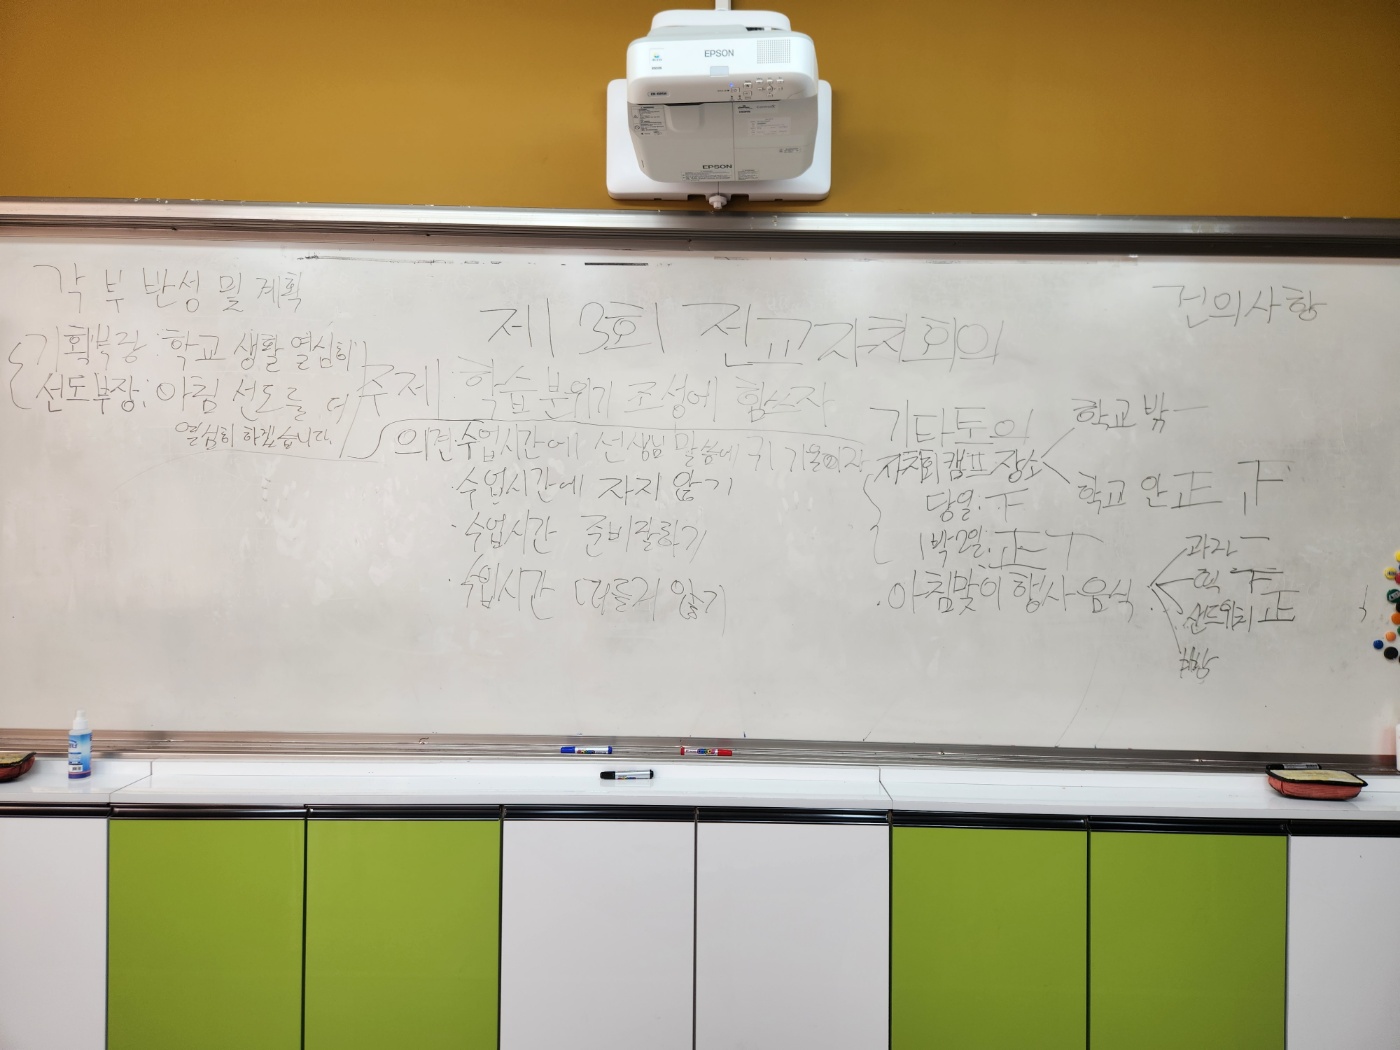 EPSON
EPSON
각 부 반성 및 계획
기획부장 : 학교 생활 열심히
선도부장 : 아침 선도를 더
열심히 하겠습니다.
제 3회 전교자치회의
주제 : 학습 분위기 조성에 힘쓰자
의견 · 수업시간에 선생님 말씀에 귀 기울이자
· 수업시간에 자지 않기
· 수업시간 준비잘하기
· 수업시간 떠들지 않기
건의사항
기타토의
자치회 캠프 장소
학교 밖 一
학교 안 正 下
당일 : 下
1박2일 : 正 丅
· 아침맞이 행사 음식
과자 一
떡 下
샌드위치 正